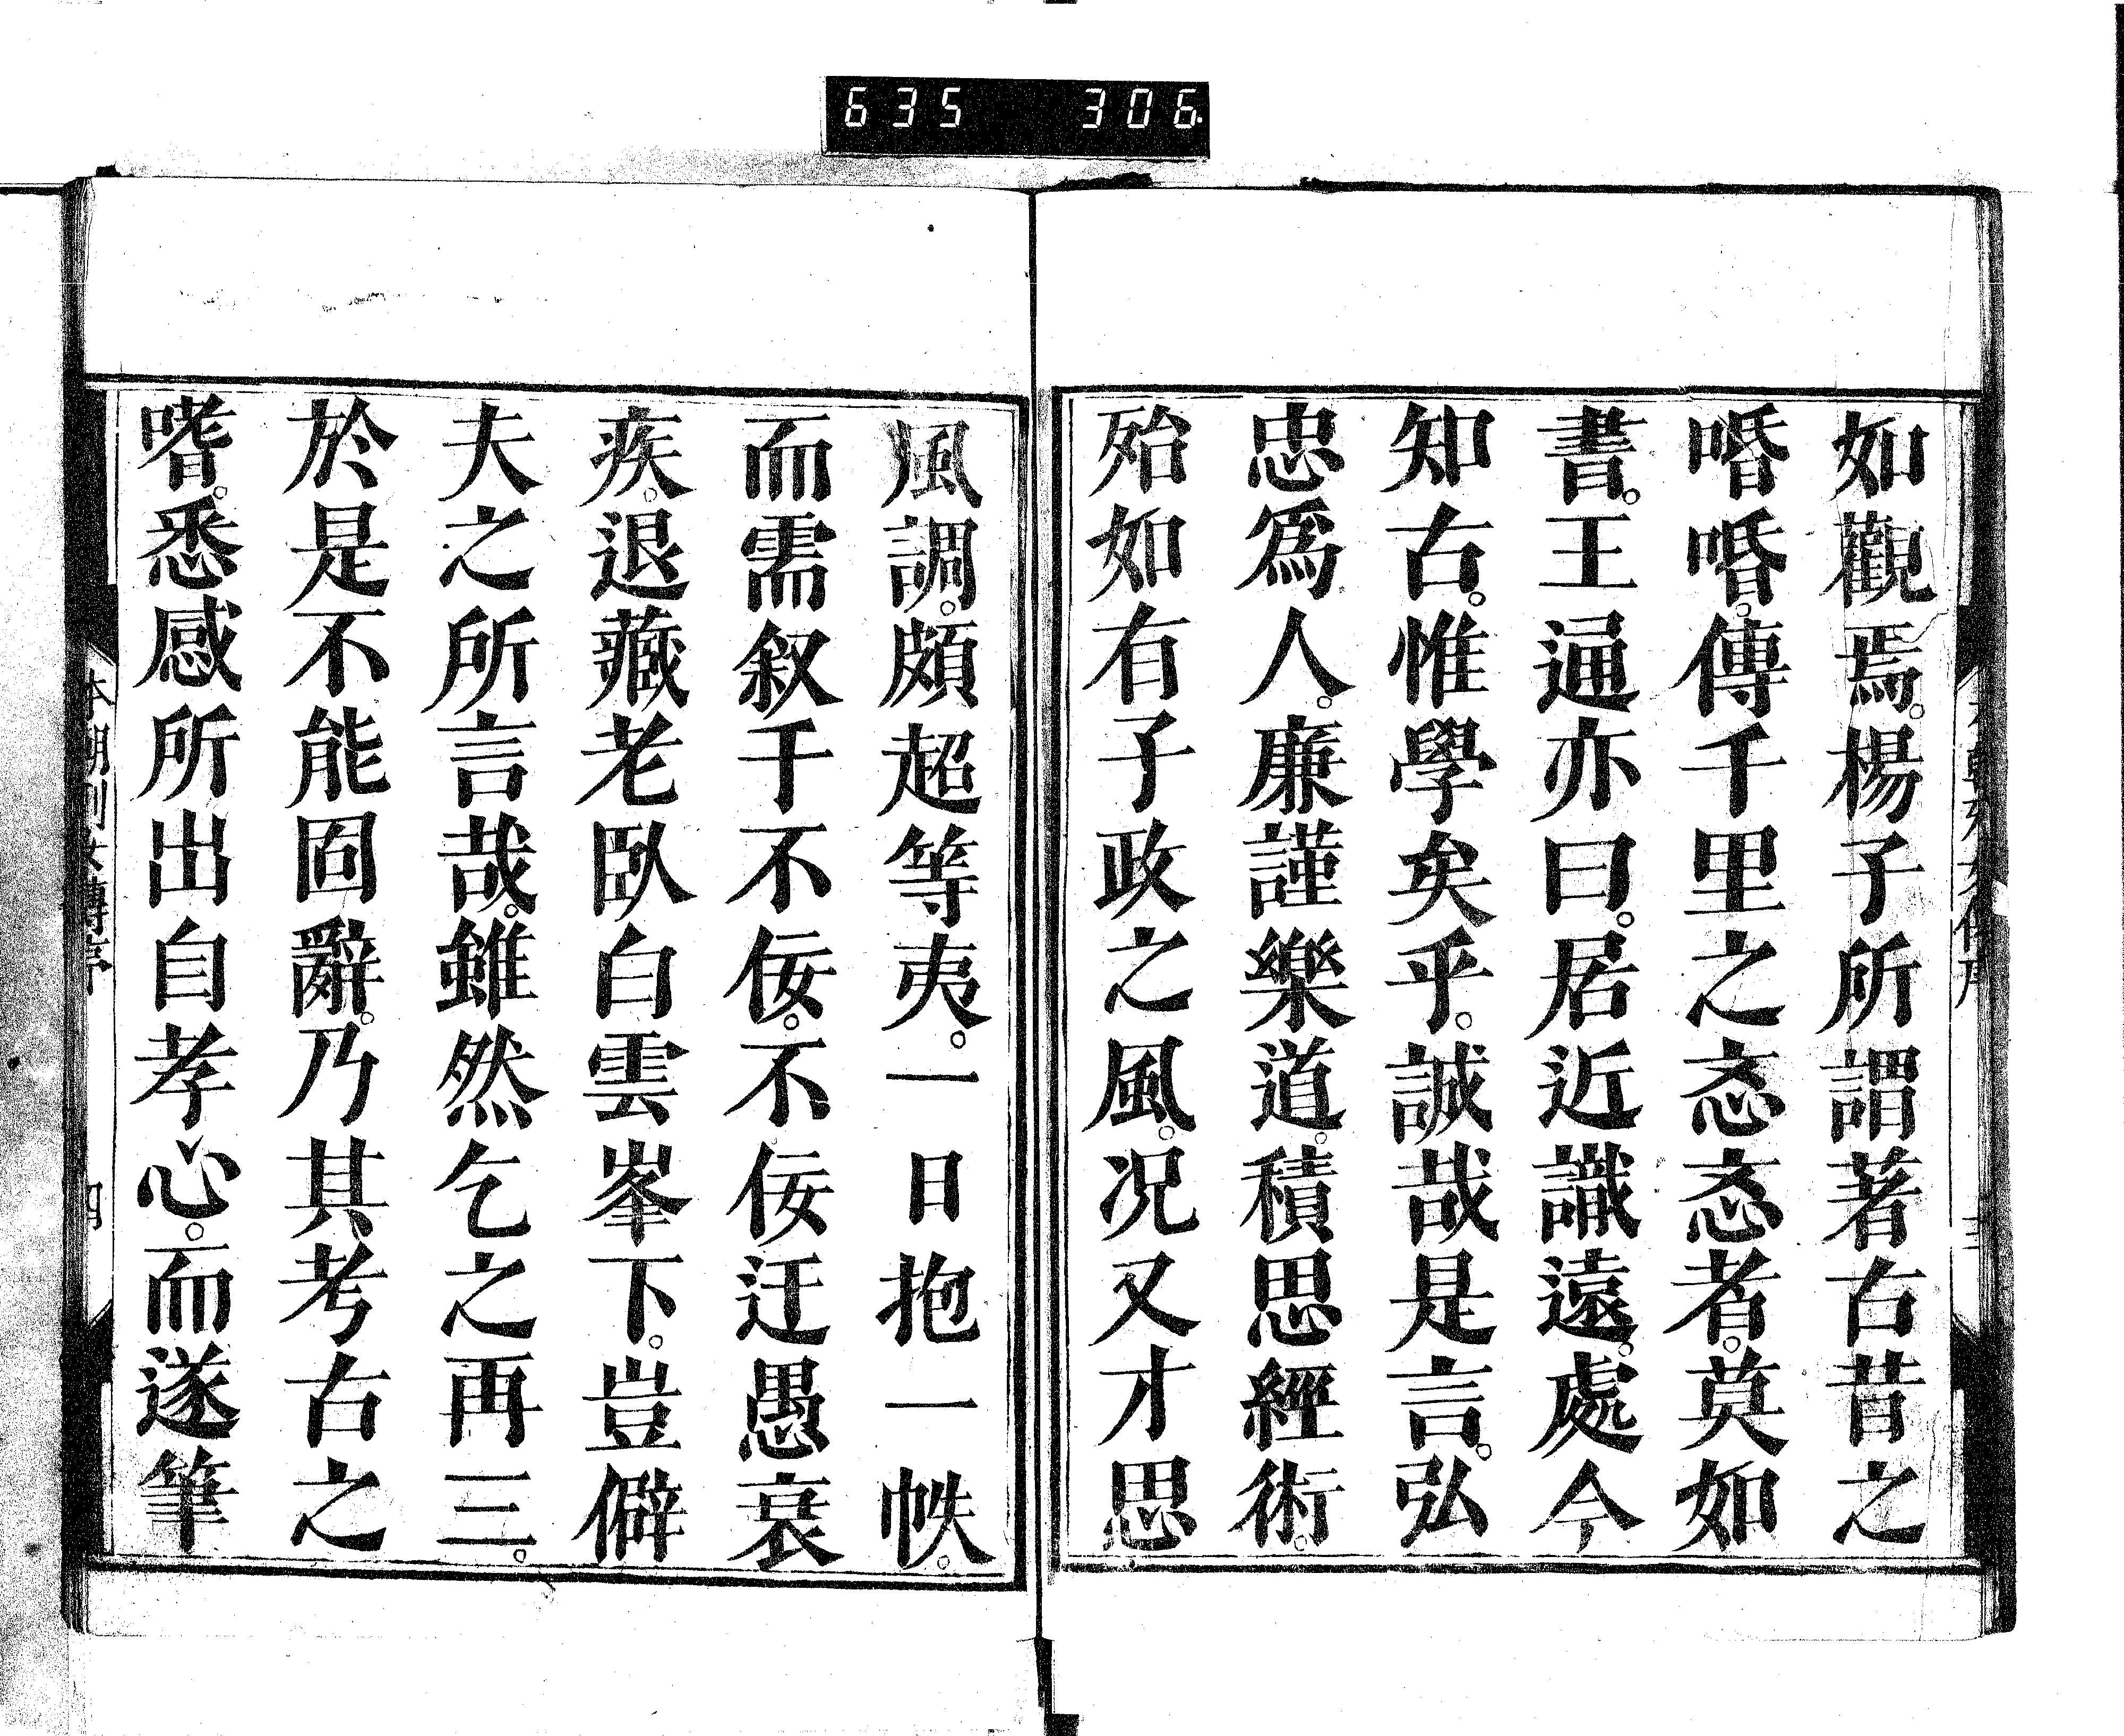 635 306
如觀焉。楊子所謂著古昔之
㖧㖧。傳千里之忞忞者。莫如
書。王通亦曰。居近識遠。處今
知古。惟學矣乎。誠哉是言。弘
忠爲人。廉謹樂道。積思經術。
殆如有子政之風。况又才思
風調。頗超等夷。一日抱一帙。
而需叙于不佞。不佞迂愚衰
疾。退藏老臥白雲峯下。豈僻
夫之所言哉。雖然乞之再三。
於是不能固辭。乃其考古之
嗜。悉感所出自孝心。而遂筆
本朝列女傳序 四